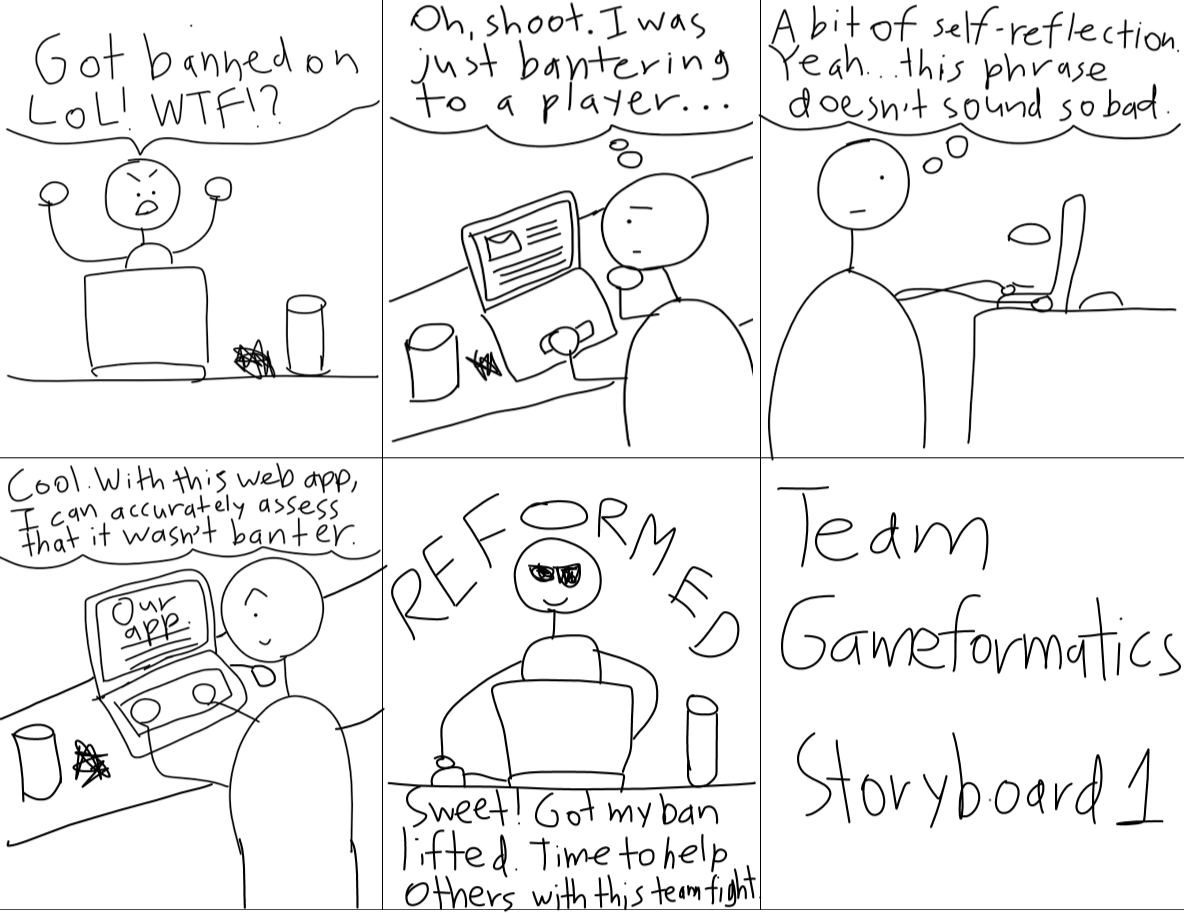 Got banned on
LoL! WTF!?
Oh, shoot. I was
just bantering
to a player...
A bit of self-reflection.
Yeah...this phrase
doesn't sound so bad.
Cool. With this web app,
I can accurately assess
that it wasn't banter.
Our
app.
REFORMED
Sweet! Got my ban
lifted. Time to help
others with this teamfight
Team
Gameformatics
Storyboard 1